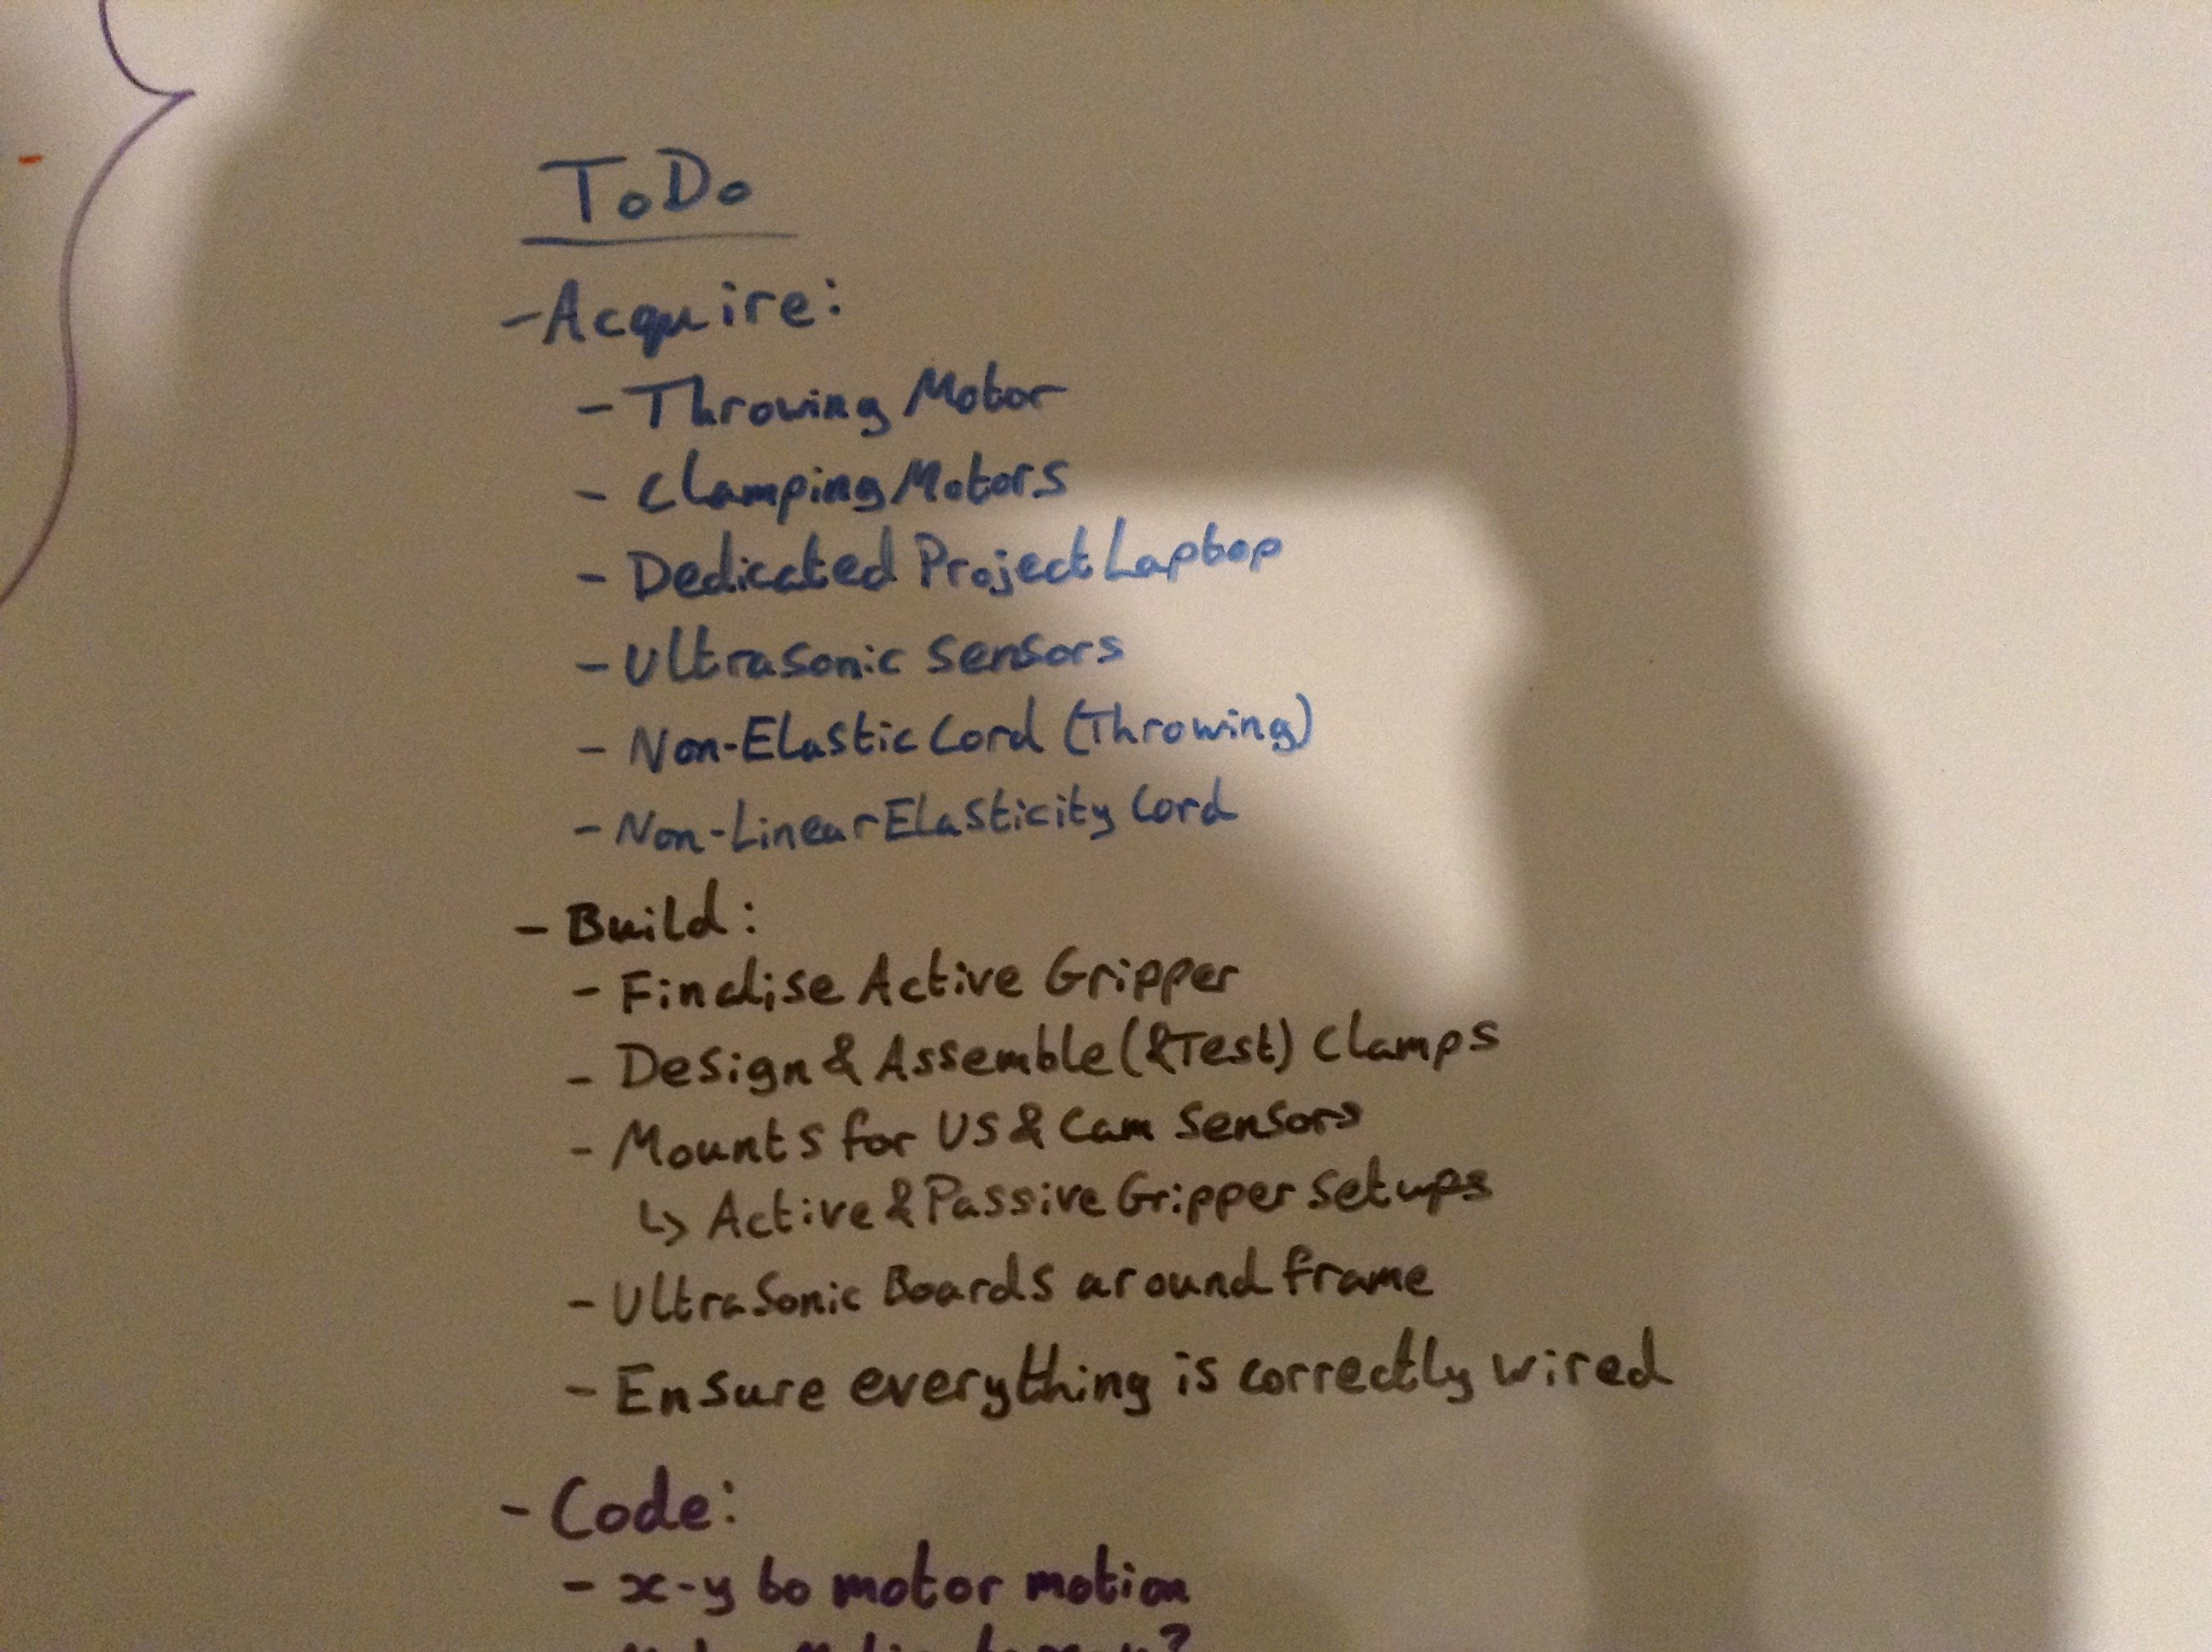 ToDo
- Acquire:
- Throwing Motor
- Clamping Motors
- Dedicated Project Laptop
- Ultrasonic Sensors
- Non-Elastic Cord (Throwing)
- Non-Linear Elasticity Cord
- Build:
- Finalise Active Gripper
- Design & Assemble (& Test) Clamps
- Mounts for US & Cam Sensors
↳ Active & Passive Gripper Setups
- UltraSonic Boards around frame
- Ensure everything is correctly wired
- Code:
- x-y to motor motion